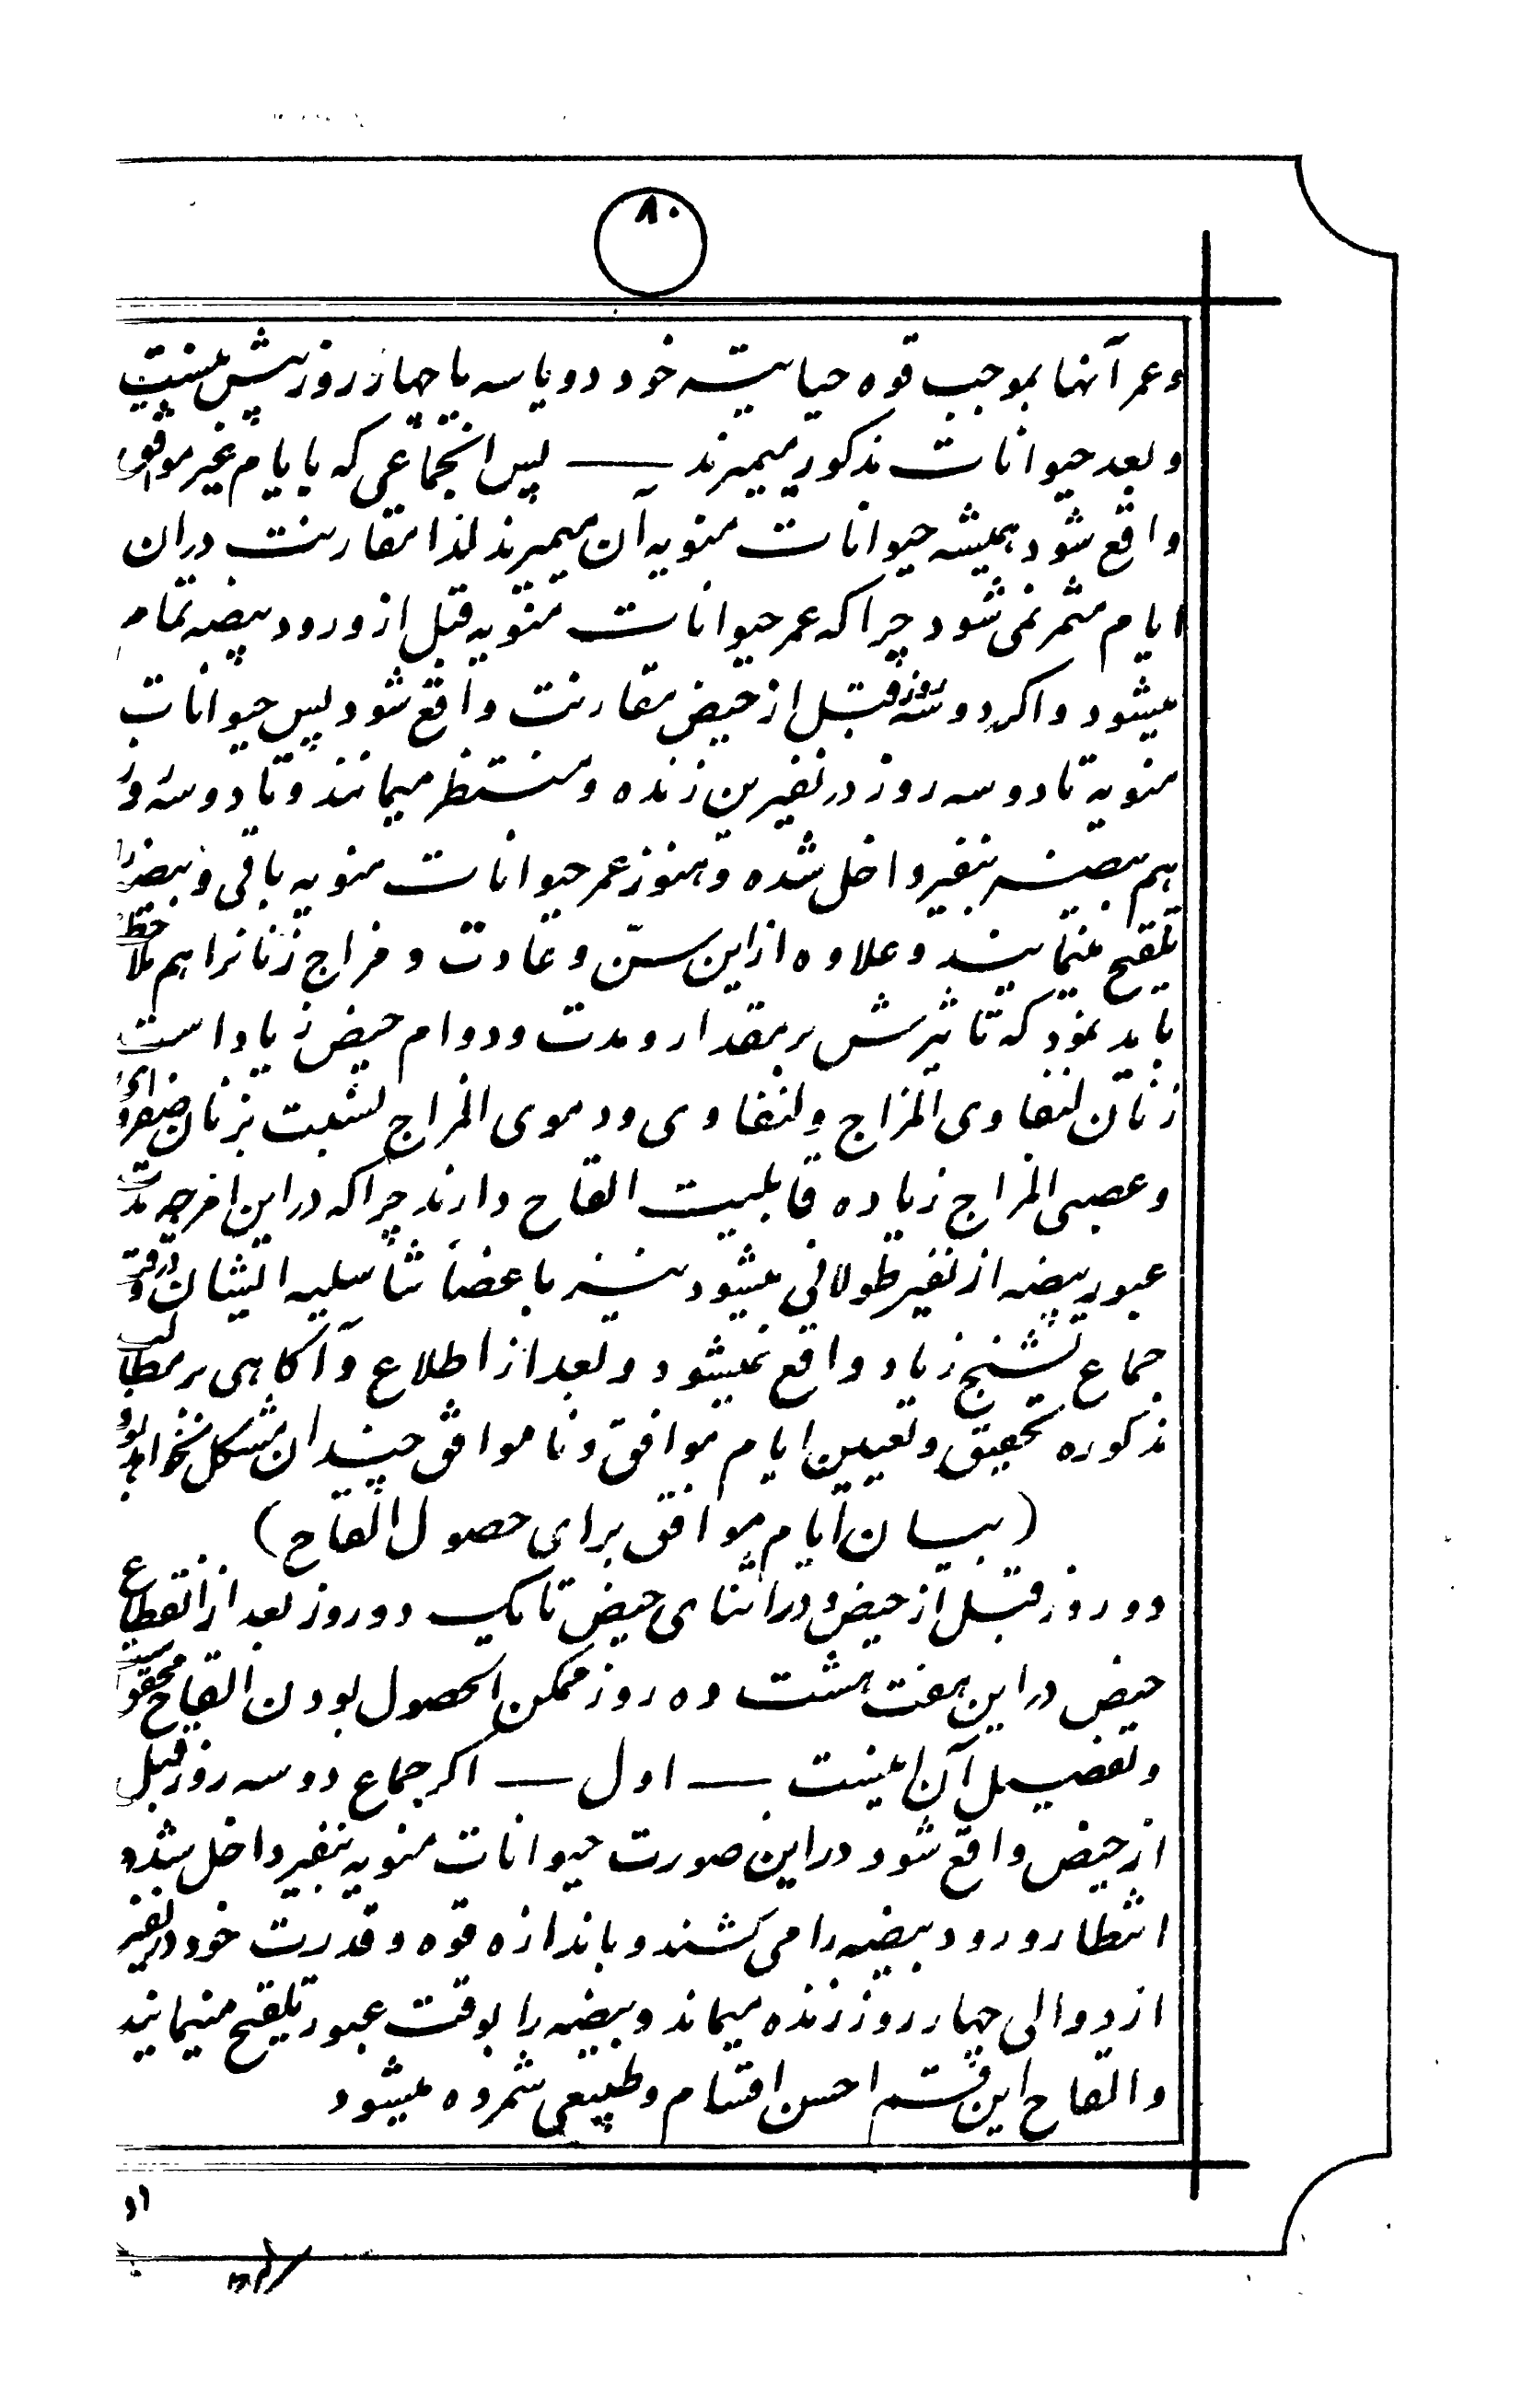 ۸۰
وعمر آنها بموجب قوه حیاتیه خود دو یا سه یا چهار روز بیش نیست
و بعد حیوانات مذکور میمیرند — پس انجماعی که بایام غیر موافق
واقع شود همیشه حیوانات منویه آن میمیرند لذا مقارنت دران
ایام مثمر نمی شود چرا که عمر حیوانات منویه قبل از ورود بیضه تمام
میشود و اکر دو سه روز قبل از حیض مقارنت واقع شود پس حیوانات
منویه تا دو سه روز در نفیرین زنده و منتظر میمانند و تا دو سه روز
هم بیضه بنفیر داخل شده و هنوز عمر حیوانات منویه باقی و بیضه را
تلقیح مینمایند و علاوه از این سن و عادت و مزاج زنانرا هم ملاحظه
باید نمود که تاثیرش بر مقدار و مدت و دوام حیض زیاد است
زنان لنفاوی المزاج و لنفاوی ودموی المزاج نسبت بزنان صفراوی
وعصبی المزاج زیاده قابلیت القاح دارند چرا که در این امزجه مدت
عبور بیضه از نفیر طولانی میشود نیز باعضاء تناسلیه ایشان در وقت
جماع تشنج زیاد واقع نمیشود و بعد از اطلاع و آکاهی بر مطالب
مذکوره تحقیق و تعیین ایام موافق و نا موافق چندان مشکل نخواهد بود
(بیان ایام موافق برای حصول القاح)
دو روز قبل از حیض و در اثنای حیض تا یک دو روز بعد از انقطاع
حیض در این هفت هشت ده روز ممکن الحصول بودن القاح محقق است
و تفصیل آن اینست — اول — اکر جماع دو سه روز قبل
از حیض واقع شود در این صورت حیوانات منویه بنفیر داخل شده
انتظار ورود بیضه را می کشند و باندازه قوه و قدرت خود در نفیر
از دو الی چهار روز زنده میماند و بیضه را بوقت عبور تلقیح مینمایند
و القاح این قسم احسن اقسام و طبیعی شمرده میشود